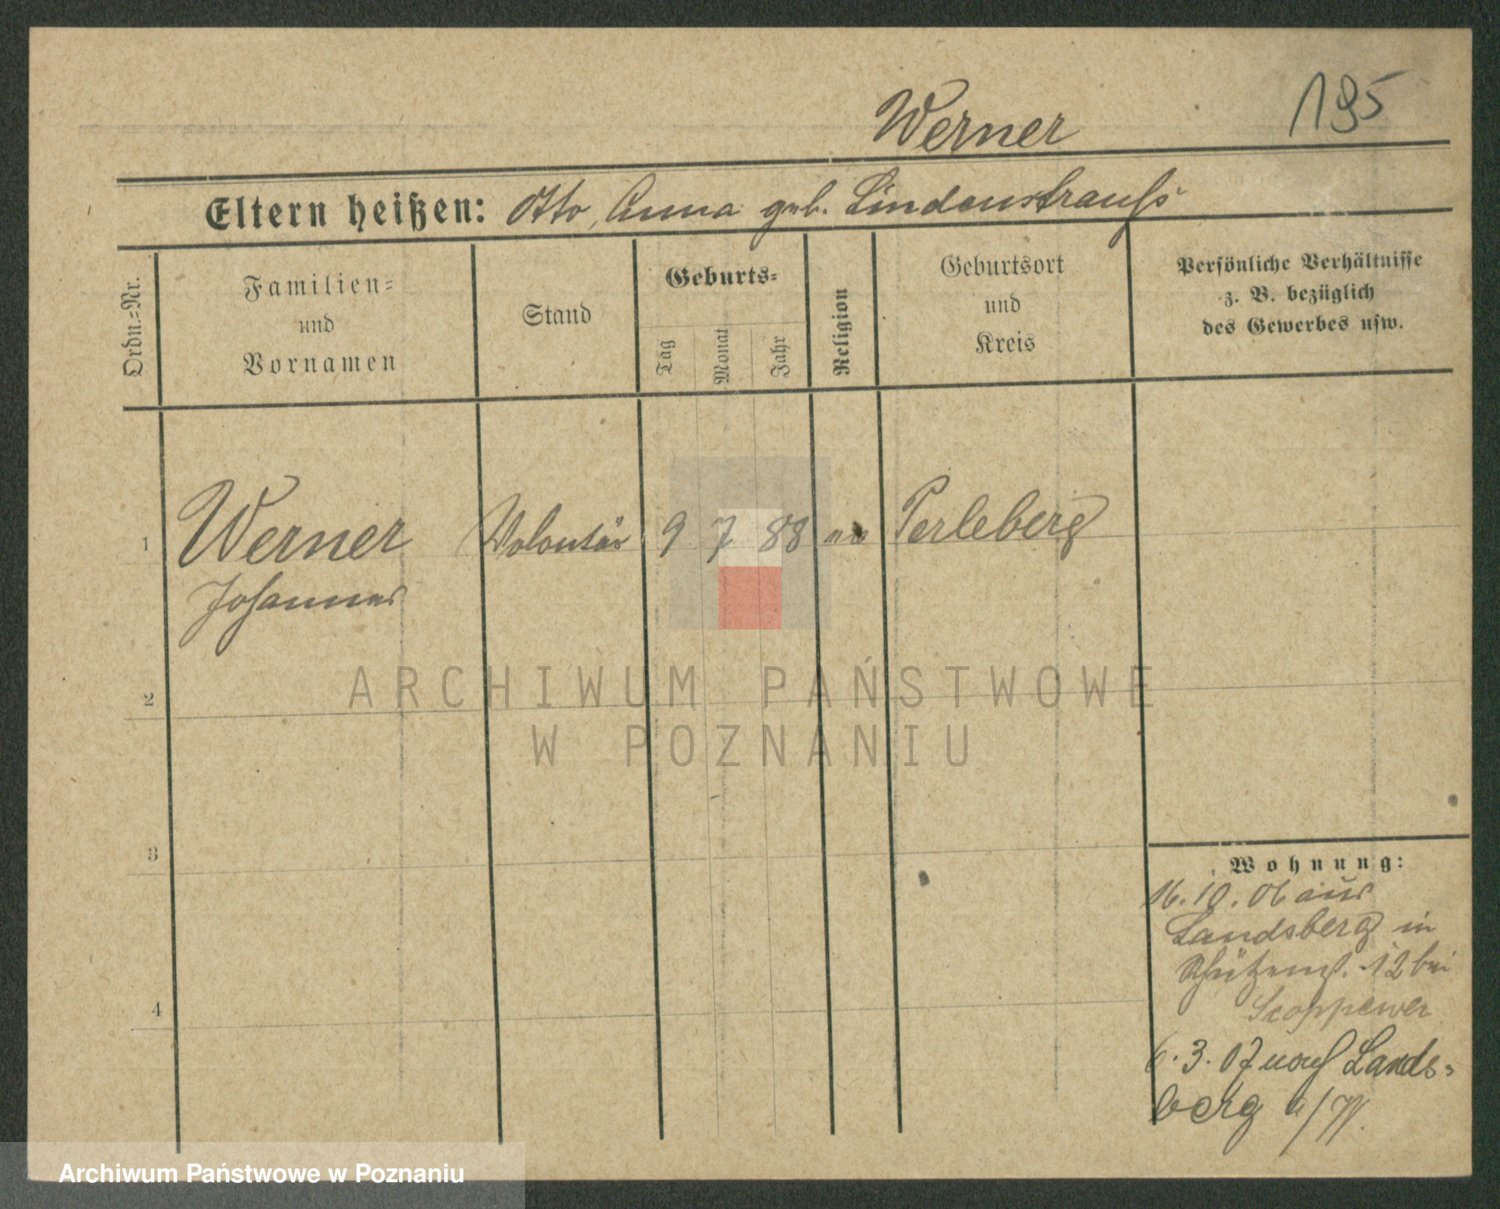 Werner
195
Eltern heißen: Otto, Anna geb. Lindenstrauß
Ordn.=Nr.
Familien=
und
Vornamen
Stand
Geburts=
Tag
Monat
Jahr
Religion
Geburtsort
und
Kreis
Persönliche Verhältnisse
z. B. bezüglich
des Gewerbes usw.
1 Werner Volontär 9 7 88 Perleberg
Johannes
2
3
4
Wohnung:
16.10.06 aus
Landsberg in
Schützenst. 12 bei
6.3.07 nach Lands=
berg a/W.
ARCHIWUM PAŃSTWOWE
W POZNANIU
Archiwum Państwowe w Poznaniu